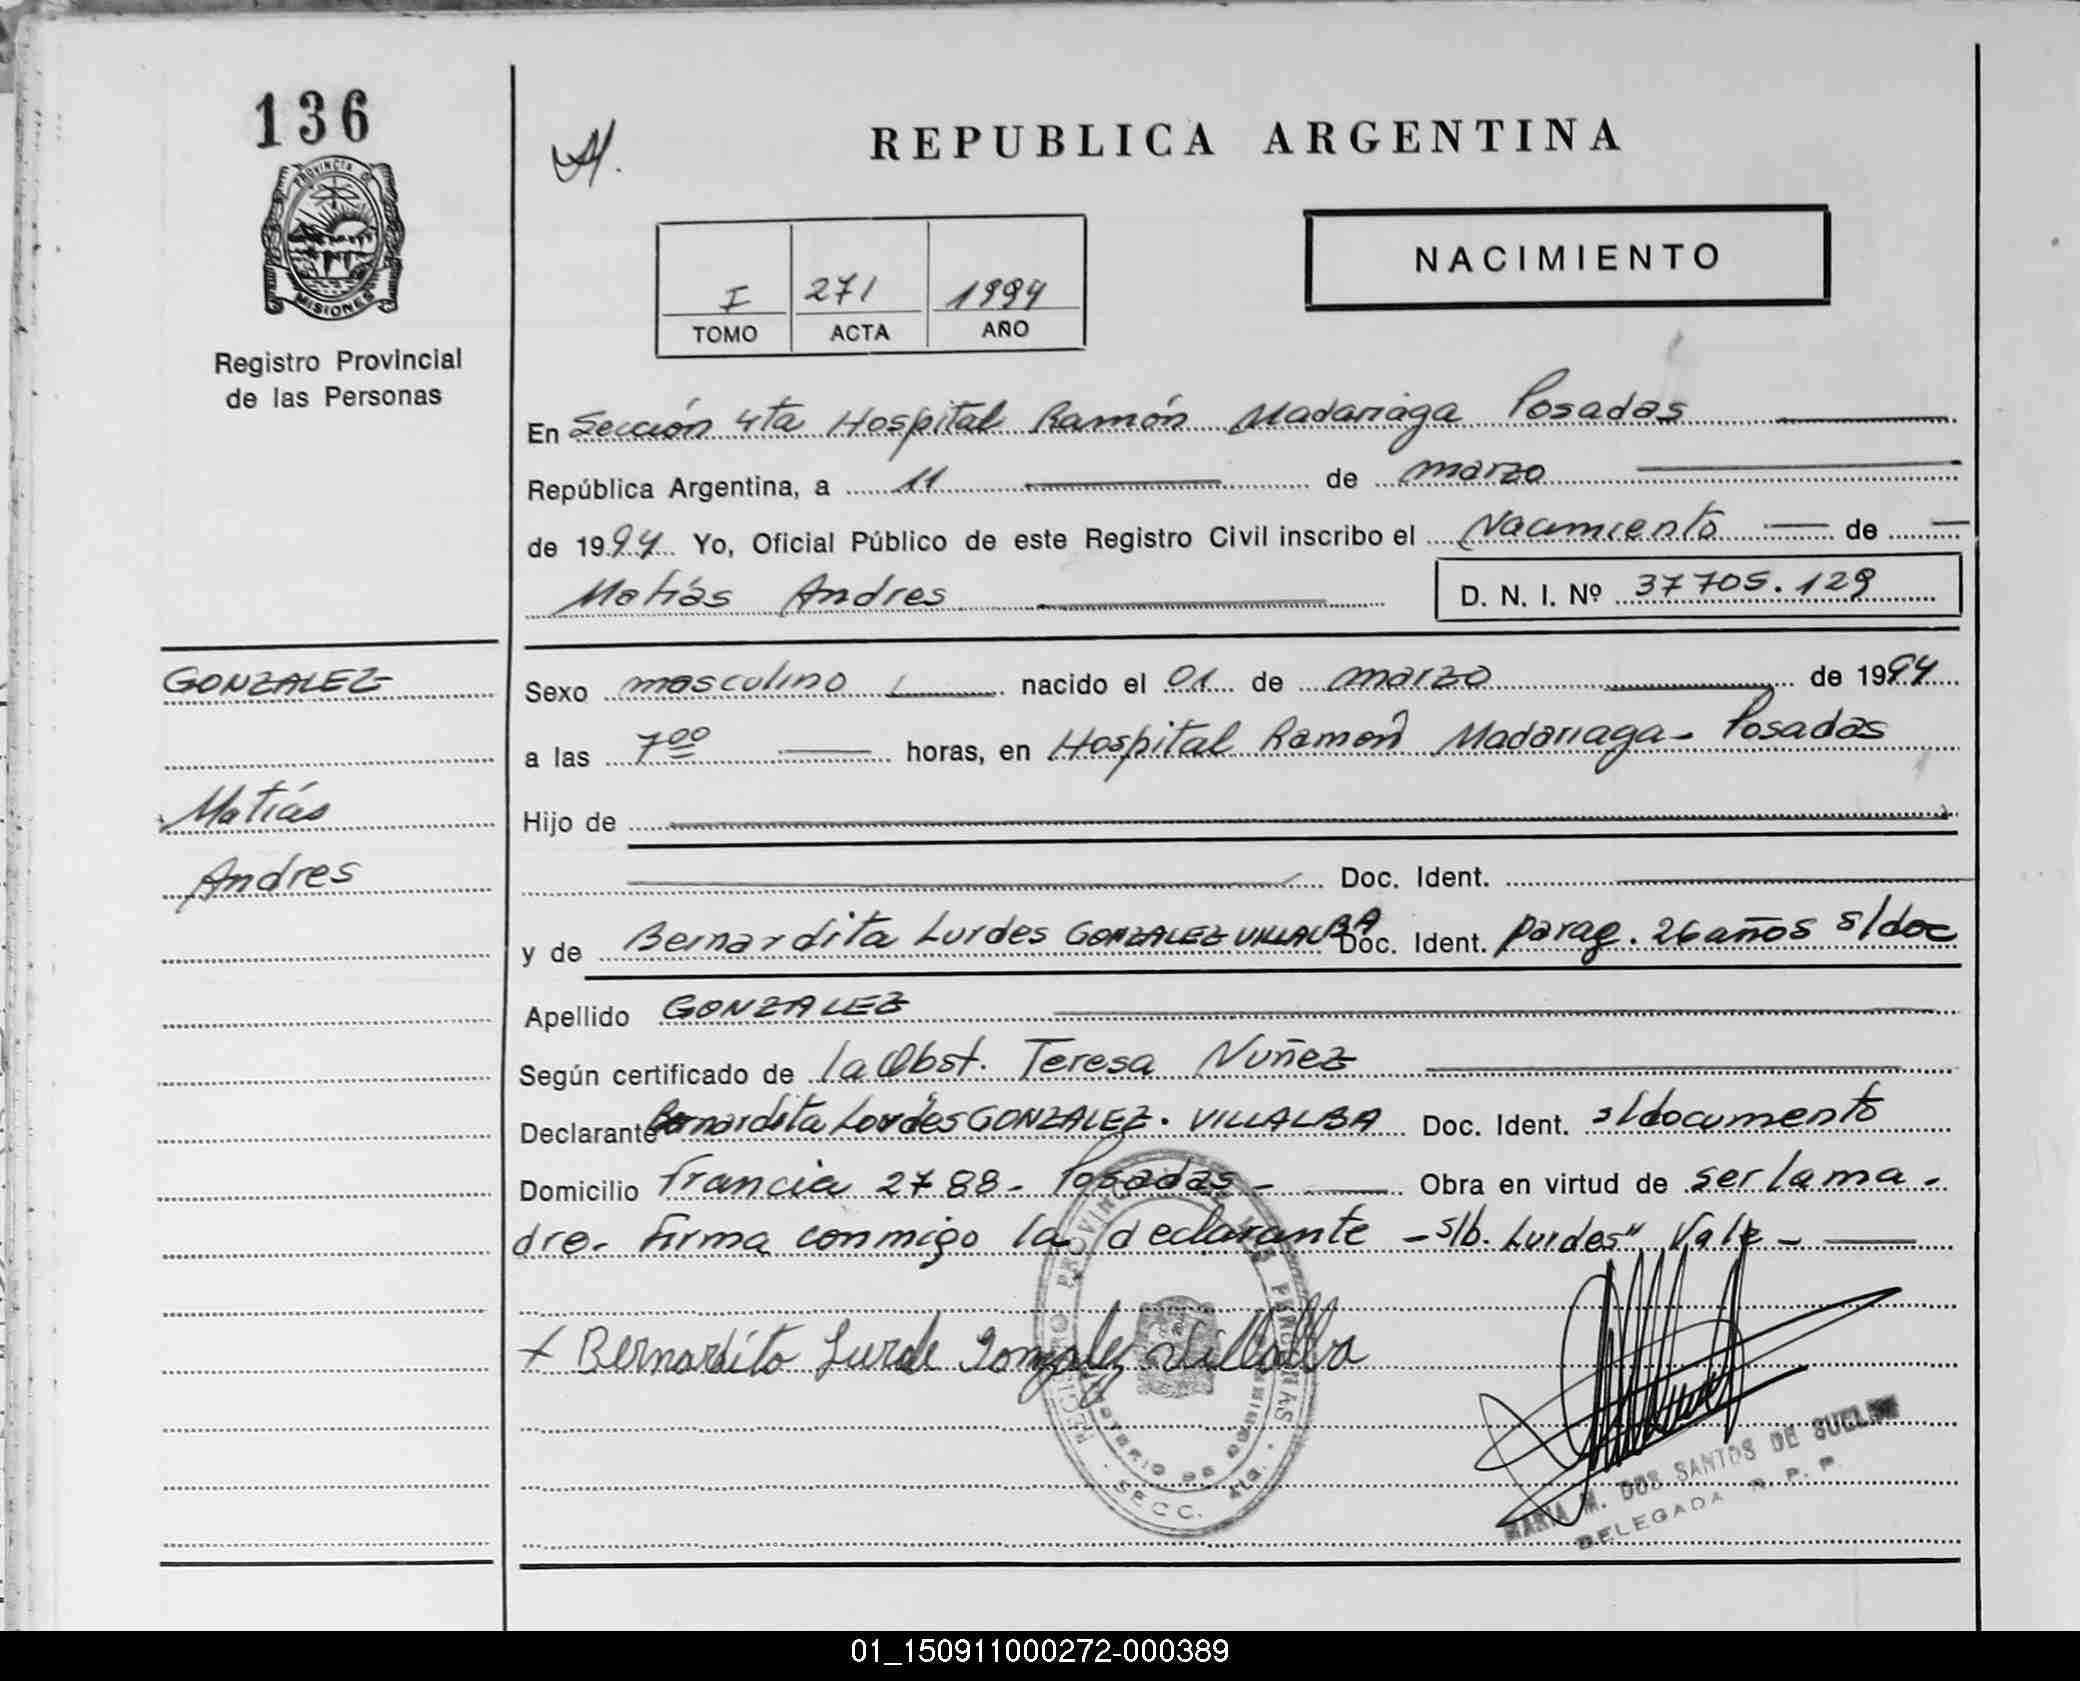 136
PROVINCIA DE
MISIONES
Registro Provincial
de las Personas
REPUBLICA ARGENTINA
NACIMIENTO
I 271 1994
TOMO ACTA AÑO
En Sección 4ta Hospital Ramón Madariaga Posadas
República Argentina, a 11 de marzo
de 1994 Yo, Oficial Público de este Registro Civil inscribo el Nacimiento de
Matiás Andres D. N. I. Nº 37705.129
GONZALEZ
Matiás
Andres
Sexo masculino nacido el 01 de marzo de 1994
a las 700 horas, en Hospital Ramón Madariaga - Posadas
Hijo de
Doc. Ident.
y de Bernardita Lurdes GONZALEZ VILLALBA Doc. Ident. parag. 26 años s/doc
Apellido GONZALEZ
Según certificado de la Obst. Teresa Nuñez
Declarante Bernardita Lourdes GONZALEZ. VILLALBA Doc. Ident. s/documento
Domicilio Francia 2788 - Posadas - Obra en virtud de ser la ma-
dre. Firma conmigo la declarante - s/b. Lurdes" Vale -
x Bernardita Lurde Gonzalez Villalba
REGISTRO PROVINCIAL DE LAS PERSONAS
MINISTERIO DE GOBIERNO
SECC. 4ta.
MARIA M. DOS SANTOS DE
DELEGADA R. P. P.
01_150911000272-000389